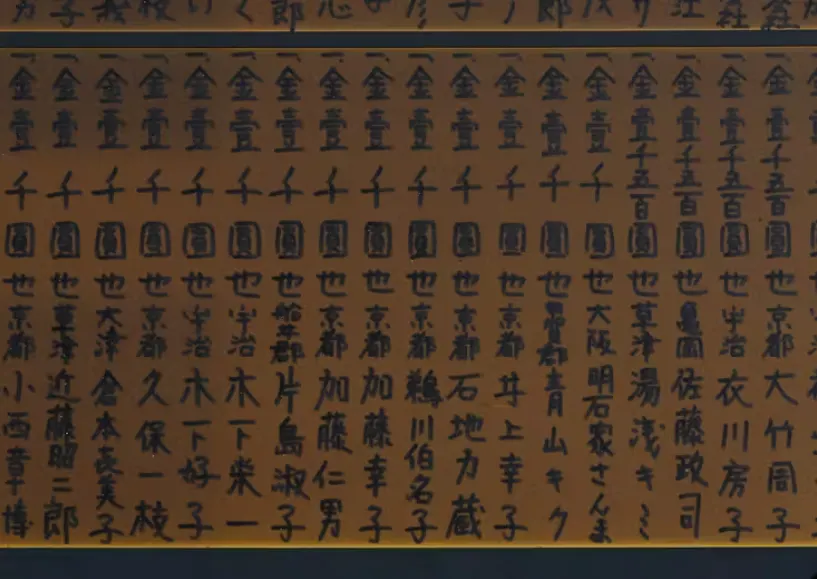 一金壹千五百圓也京都大竹周子
一金壹千五百圓也宇治衣川房子
一金壹千五百圓也亀岡佐藤政司
一金壹千五百圓也草津湯浅キミ
一金壹千圓也大阪明石家さんま
一金壹千圓也郡青山キク
一金壹千圓也京都井上幸子
一金壹千圓也京都石地力蔵
一金壹千圓也京都鵜川伯名子
一金壹千圓也京都加藤幸子
一金壹千圓也京都加藤仁男
一金壹千圓也船井郡片島淑子
一金壹千圓也宇治木下栄一
一金壹千圓也宇治木下好子
一金壹千圓也京都久保一枝
一金壹千圓也大津倉本長美子
一金壹千圓也草津近藤昭二郎
一金壹千圓也京都小西章博